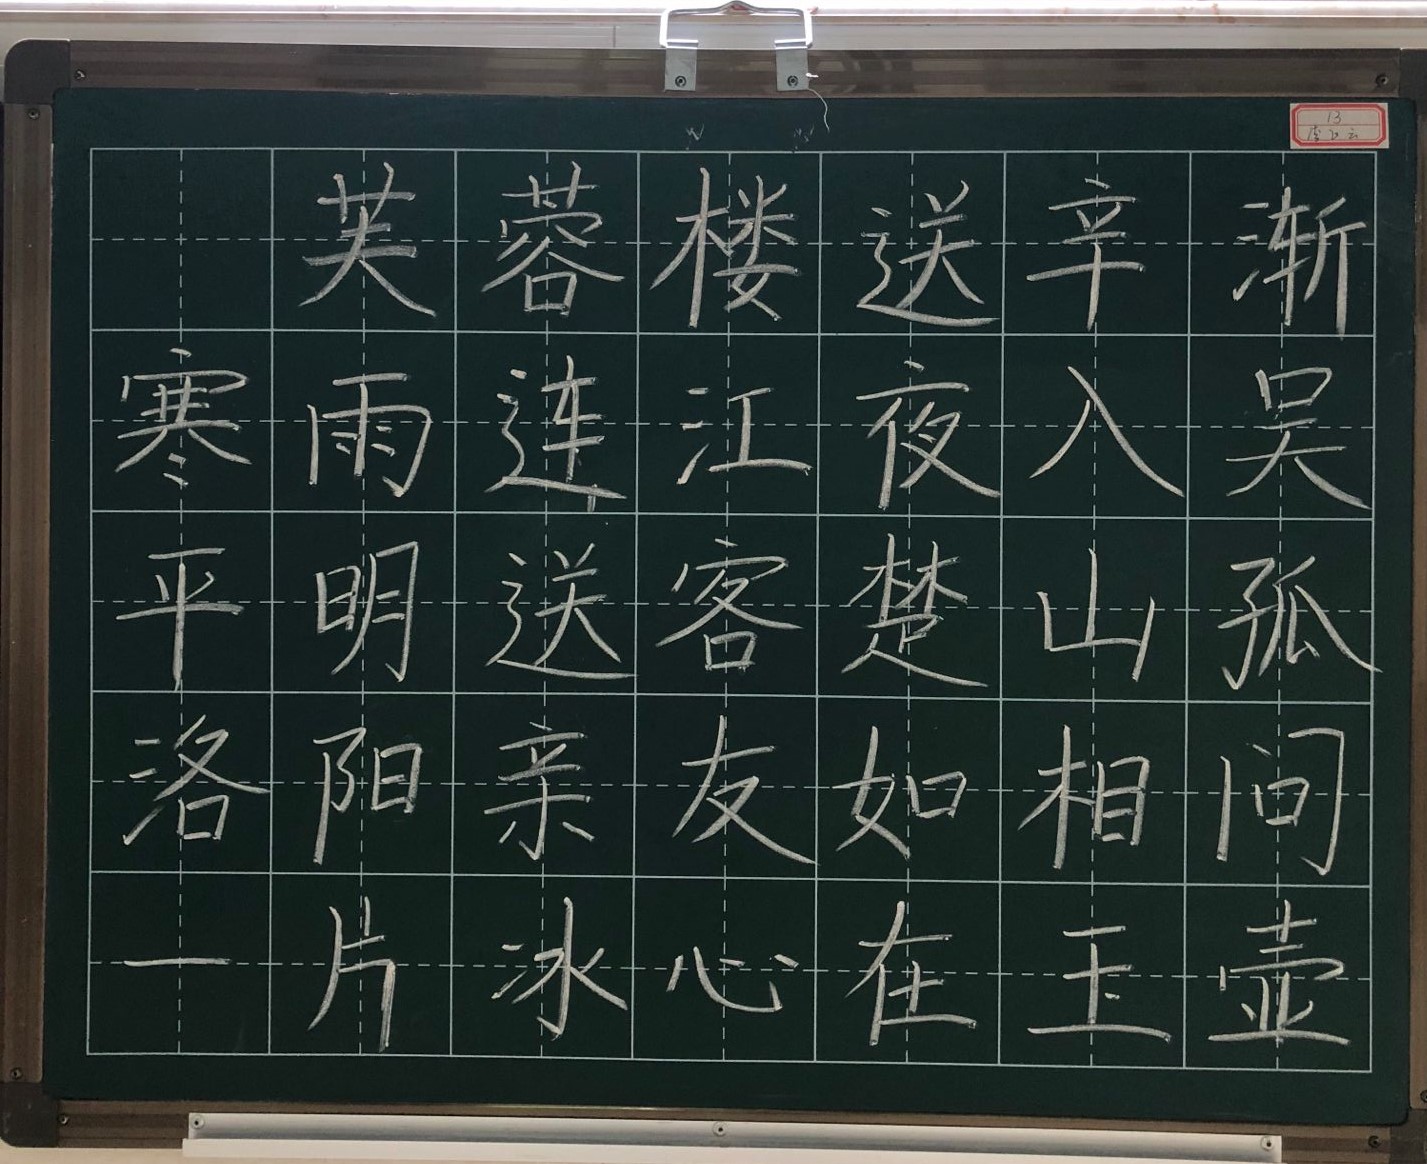 13
芙蓉楼送辛渐
寒雨连江夜入吴
平明送客楚山孤
洛阳亲友如相问
一片冰心在玉壶